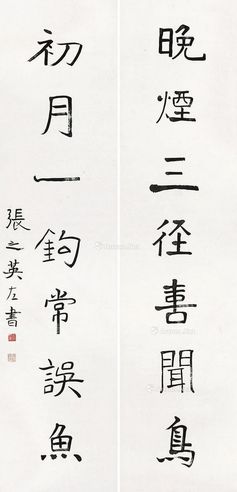 晚煙三径喜聞鳥
初月一鈎常誤魚
張之英左書